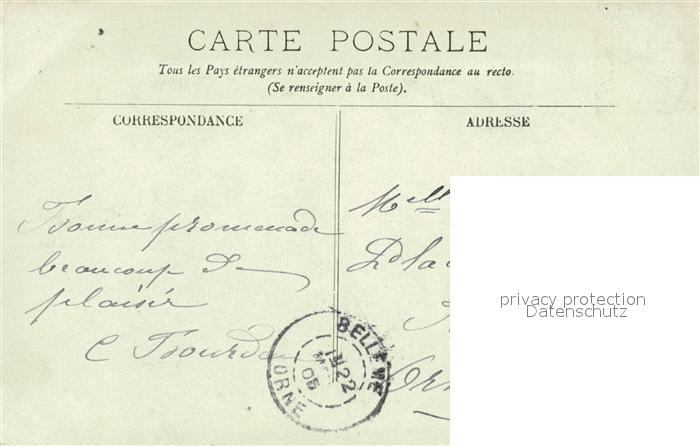 CARTE POSTALE
Tous les Pays étrangers n'acceptent pas la Correspondance au recto.
(Se renseigner à la Poste).
CORRESPONDANCE
ADRESSE
Bonne promenade
beaucoup de
plaisir
Melle
privacy protection
Datenschutz
BELLEME
22
05
ORNE
Orn